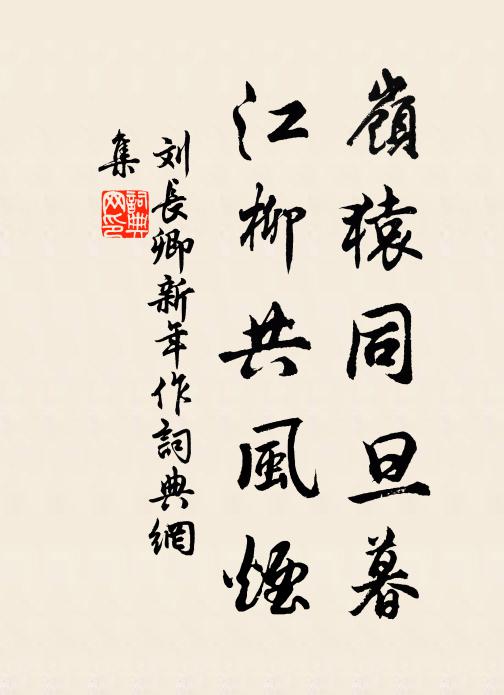 嶺猿同旦暮
江柳共風煙
刘長卿新年作詞典網
集
詞典网印